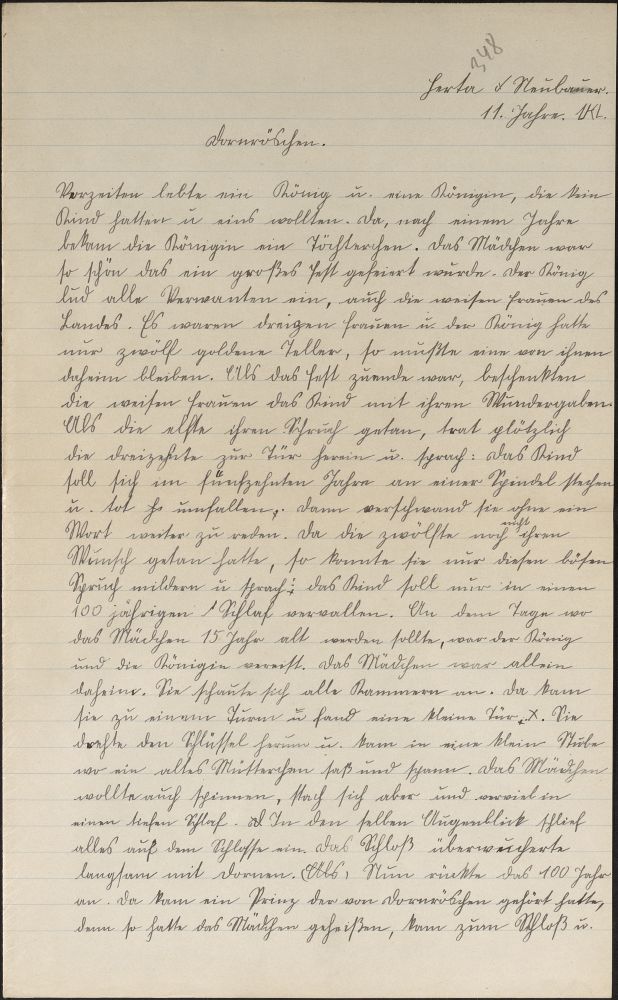 348
Herta Neubauer.
11. Jahre. IKl.
Dornröschen.
Vorzeiten lebte ein König u. eine Königin, die kein
Kind hatten u eins wollten. Da, nach einem Jahre
bekam die Königin ein Töchterchen. Das Mädchen war
so schön das ein großes Fest gefeiert wurde. Der König
lud alle Verwanten ein, auch die weisen Frauen des
Landes. Es waren dreizen Frauen u. der König hatte
nur zwölf goldene Teller, so mußte eine von ihnen
daheim bleiben. Als das Fest zuende war, beschenkten
die weisen Frauen das Kind mit ihren Wundergaben.
Als die elfte ihren Spruch getan, trat plötzlich
die dreizehnte zur Tür herein u. sprach: Das Kind
soll sich im fünfzehnten Jahre an einer Spindel stechen
u. tot umfallen. Dann verschwand sie ohne ein
Wort weiter zu reden. Da die zwölfte noch nicht ihren
Wunsch getan hatte, so konnte sie nur diesen bösen
Spruch mildern u sprach: das Kind soll nur in einen
100 jährigen Schlaf vervallen. An dem Tage wo
das Mädchen 15 Jahr alt werden sollte, war der König
und die Königin vereist. Das Mädchen war allein
daheim. Sie schaute sich alle Kammern an. Da kam
sie zu einem Turm u fand eine kleine Tür. X. Sie
drehte den Schlüssel herum u. kam in eine klein Stube
wo ein altes Mütterchen saß und spann. Das Mädchen
wollte auch spinnen, stach sich aber und verviel in
einen tiefen Schlaf. In den selben Augenblick schlief
alles auf dem Schlosse ein. Das Schloß überwucherte
langsam mit Dornen. Nun rückte das 100 Jahr
an. Da kam ein Prinz der von Dornröschen gehört hatte,
denn so hatte das Mädchen geheißen, kam zum Schloß u.